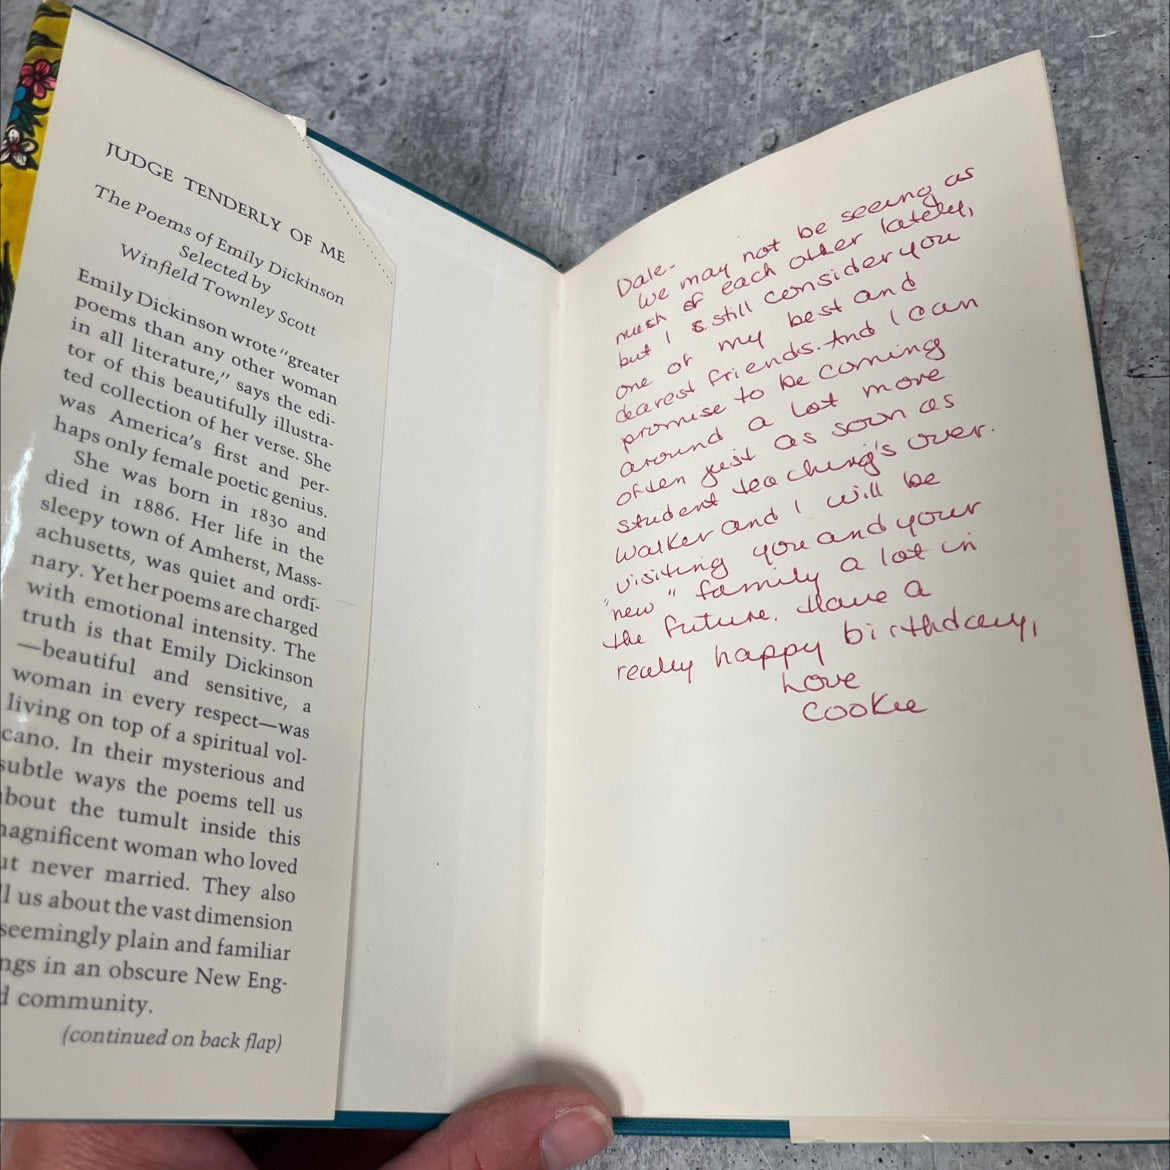 JUDGE TENDERLY OF ME
The Poems of Emily Dickinson
Selected by
Winfield Townley Scott
Emily Dickinson wrote "greater
poems than any other woman
in all literature," says the edi-
tor of this beautifully illustra-
ted collection of her verse. She
was America's first and per-
haps only female poetic genius.
She was born in 1830 and
died in 1886. Her life in the
sleepy town of Amherst, Mass-
achusetts, was quiet and ordi-
nary. Yet her poems are charged
with emotional intensity. The
truth is that Emily Dickinson
—beautiful and sensitive, a
woman in every respect—was
living on top of a spiritual vol-
cano. In their mysterious and
subtle ways the poems tell us
about the tumult inside this
magnificent woman who loved
ut never married. They also
ll us about the vast dimension
seemingly plain and familiar
ngs in an obscure New Eng-
d community.
(continued on back flap)
Dale-
We may not be seeing as
much of each other lately,
but I still consider you
one of my best and
dearest friends. And I can
promise to be coming
around a lot more
often just as soon as
student teaching's over.
Walker and I will be
visiting you and your
"new" family a lot in
the future. Have a
really happy birthday,
Love
Cookie